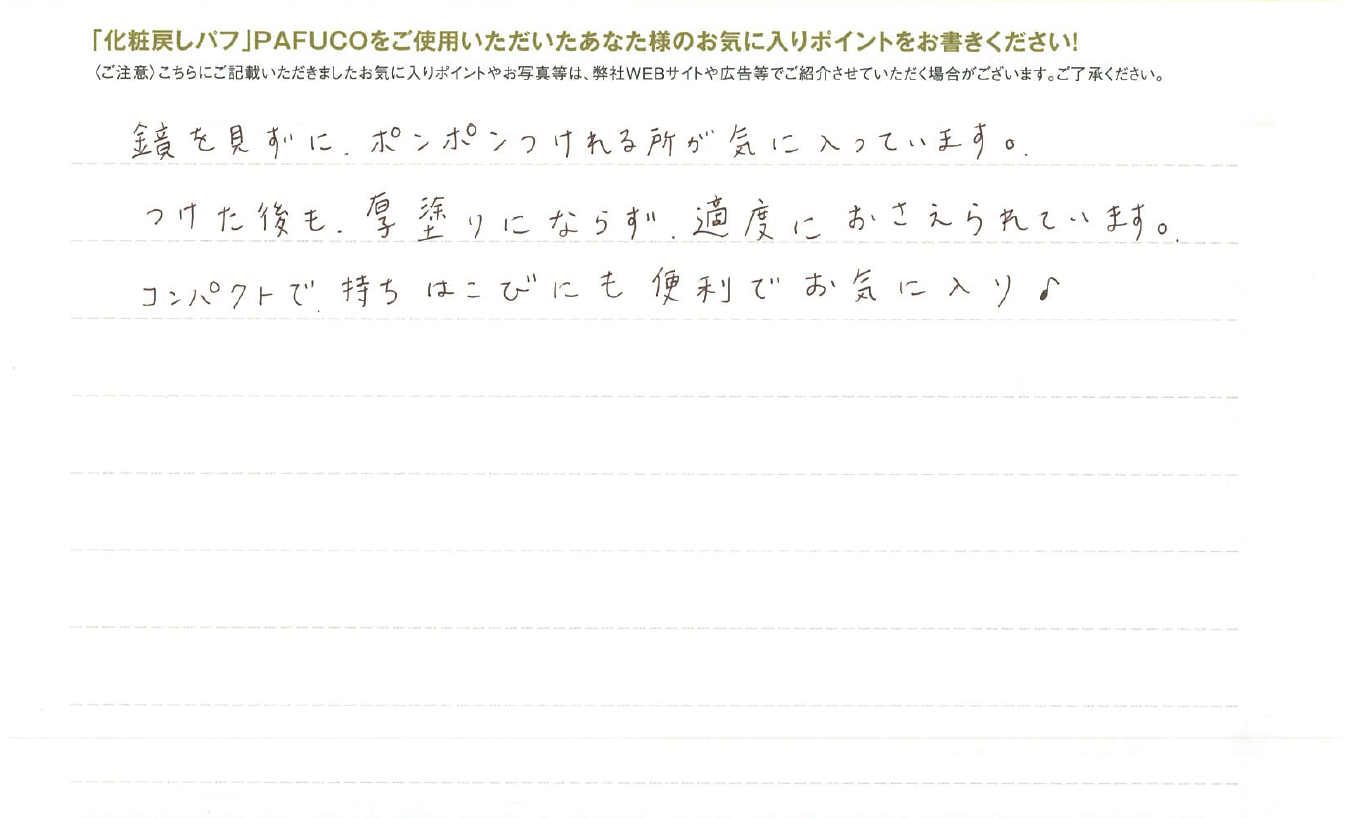 「化粧戻しパフ」PAFUCOをご使用いただいたあなた様のお気に入りポイントをお書きください!
〈ご注意〉こちらにご記載いただきましたお気に入りポイントやお写真等は、弊社WEBサイトや広告等でご紹介させていただく場合がございます。ご了承ください。
鏡を見ずに、ポンポンつけれる所が気に入っています。
つけた後も、厚塗りにならず、適度におさえられています。
コンパクトで、持ちはこびにも便利でお気に入り♪